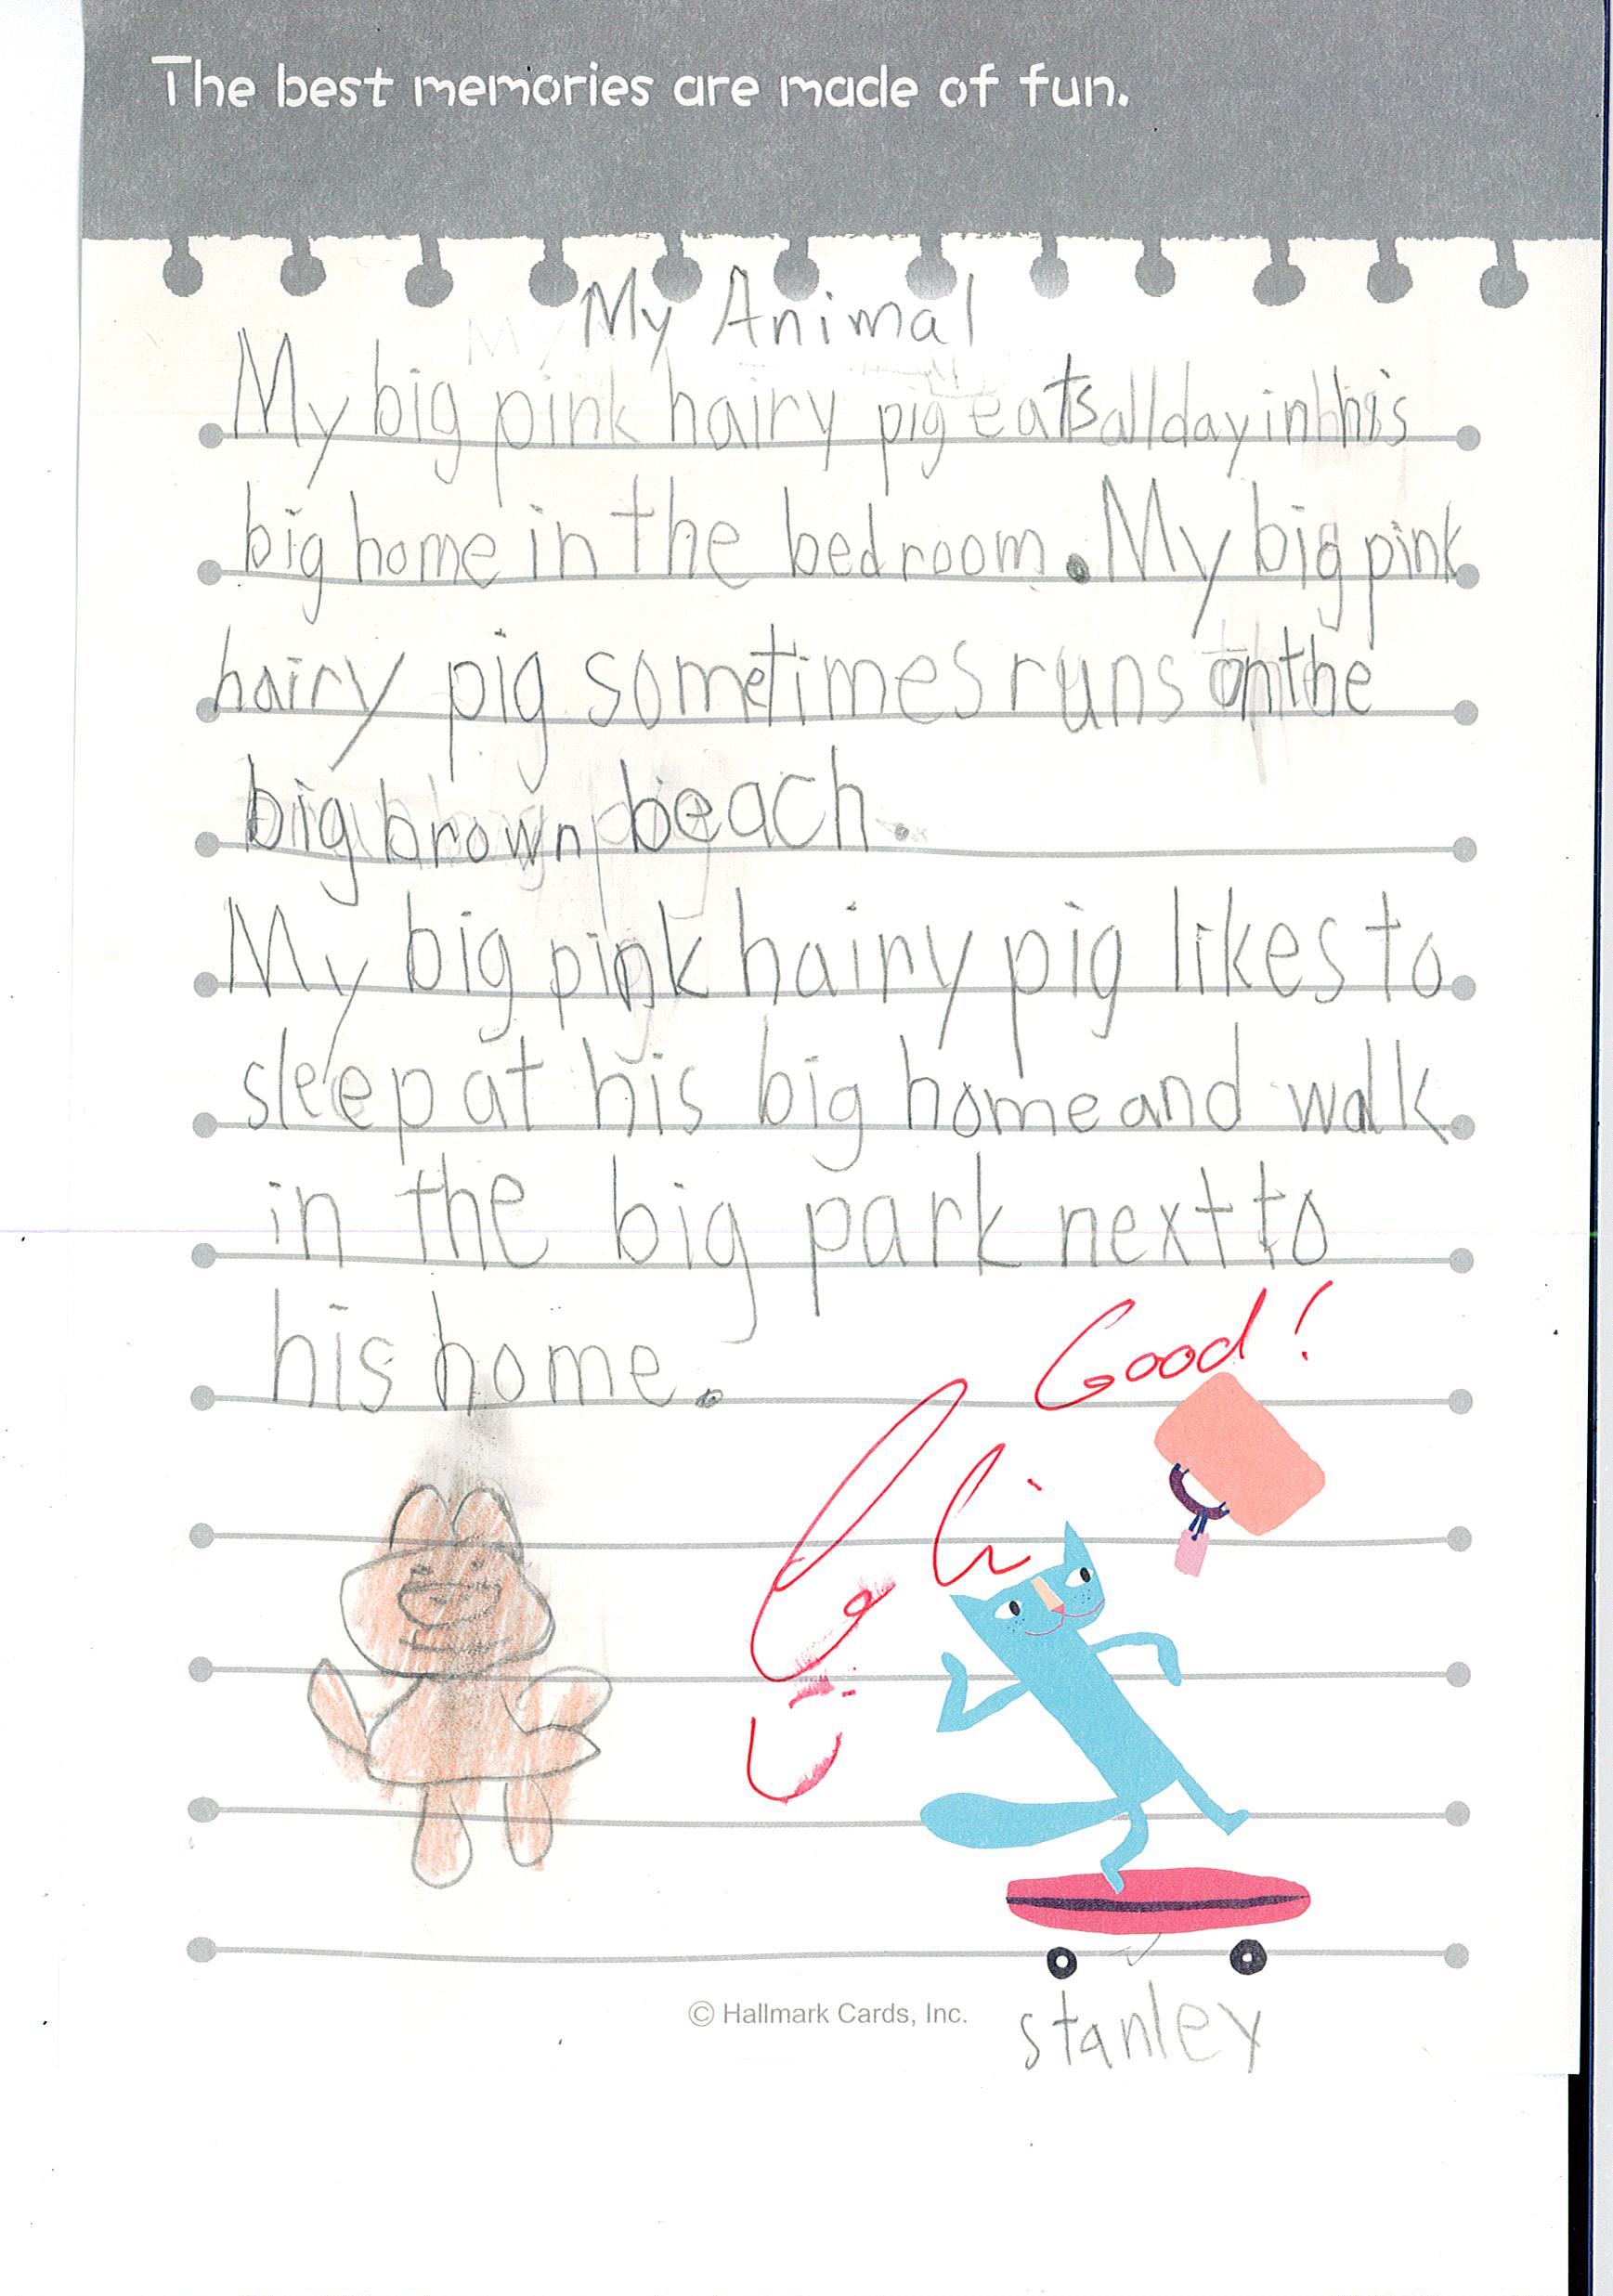 The best memories are made of fun.
My Animal
My big pink hairy pig eats all day in his
big home in the bedroom. My big pink
hairy pig sometimes runs on the
big brown beach.
My big pink hairy pig likes to
sleep at his big home and walk
in the big park next to
his home.
Good!
© Hallmark Cards, Inc.
stanley